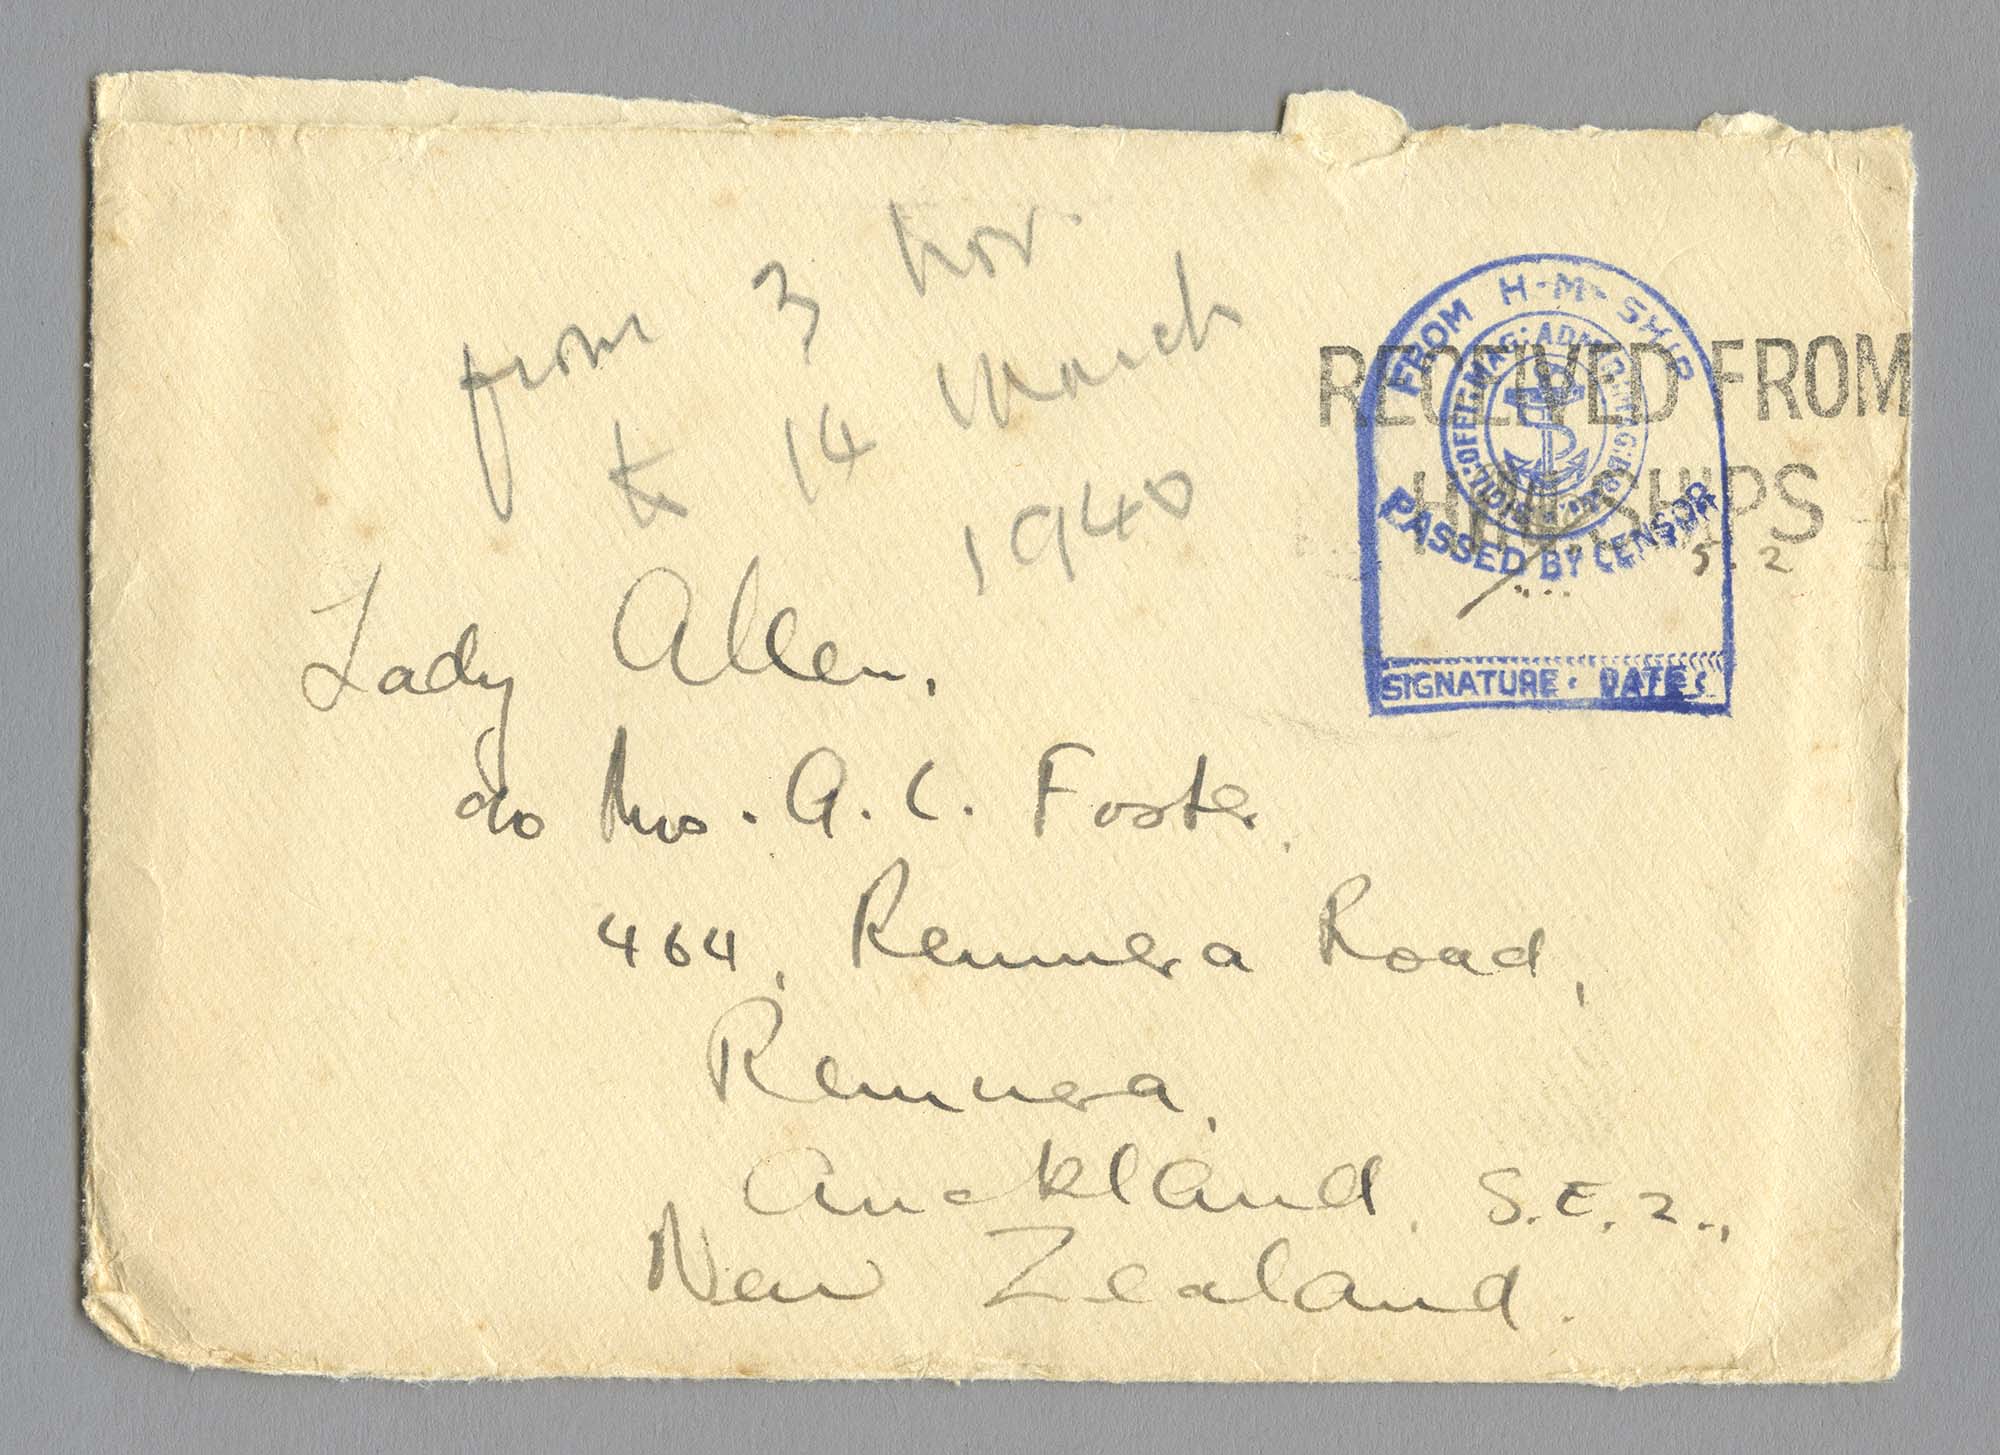 from 3 Nov.
to 14 March
1940
FROM H·M·SHIP
RECEIVED FROM
H.M. SHIPS
PASSED BY CENSOR
5.2
SIGNATURE· DATE:
Lady Allen,
c/o Mrs. A. C. Foster,
464, Remuera Road,
Remuera,
Auckland. S.E.2.,
New Zealand.